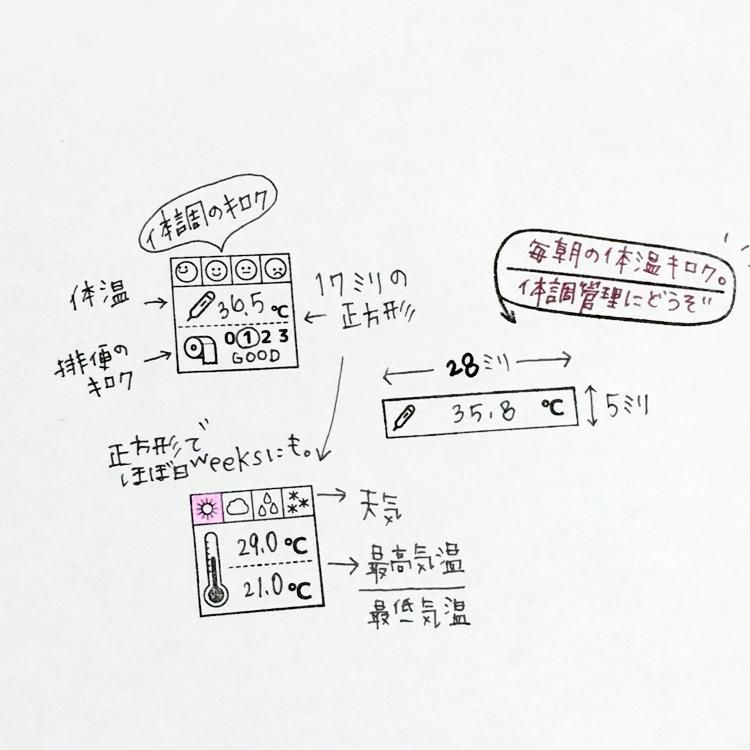 体調のキロク
体温
36.5℃
排便の
キロク
0 1 2 3
GOOD
17ミリの
正方形
毎朝の体温キロク。
体調管理にどうぞ
28ミリ
35.8 ℃
5ミリ
正方形で
ほぼ日weeksにも。
天気
29.0℃
21.0℃
最高気温
最低気温